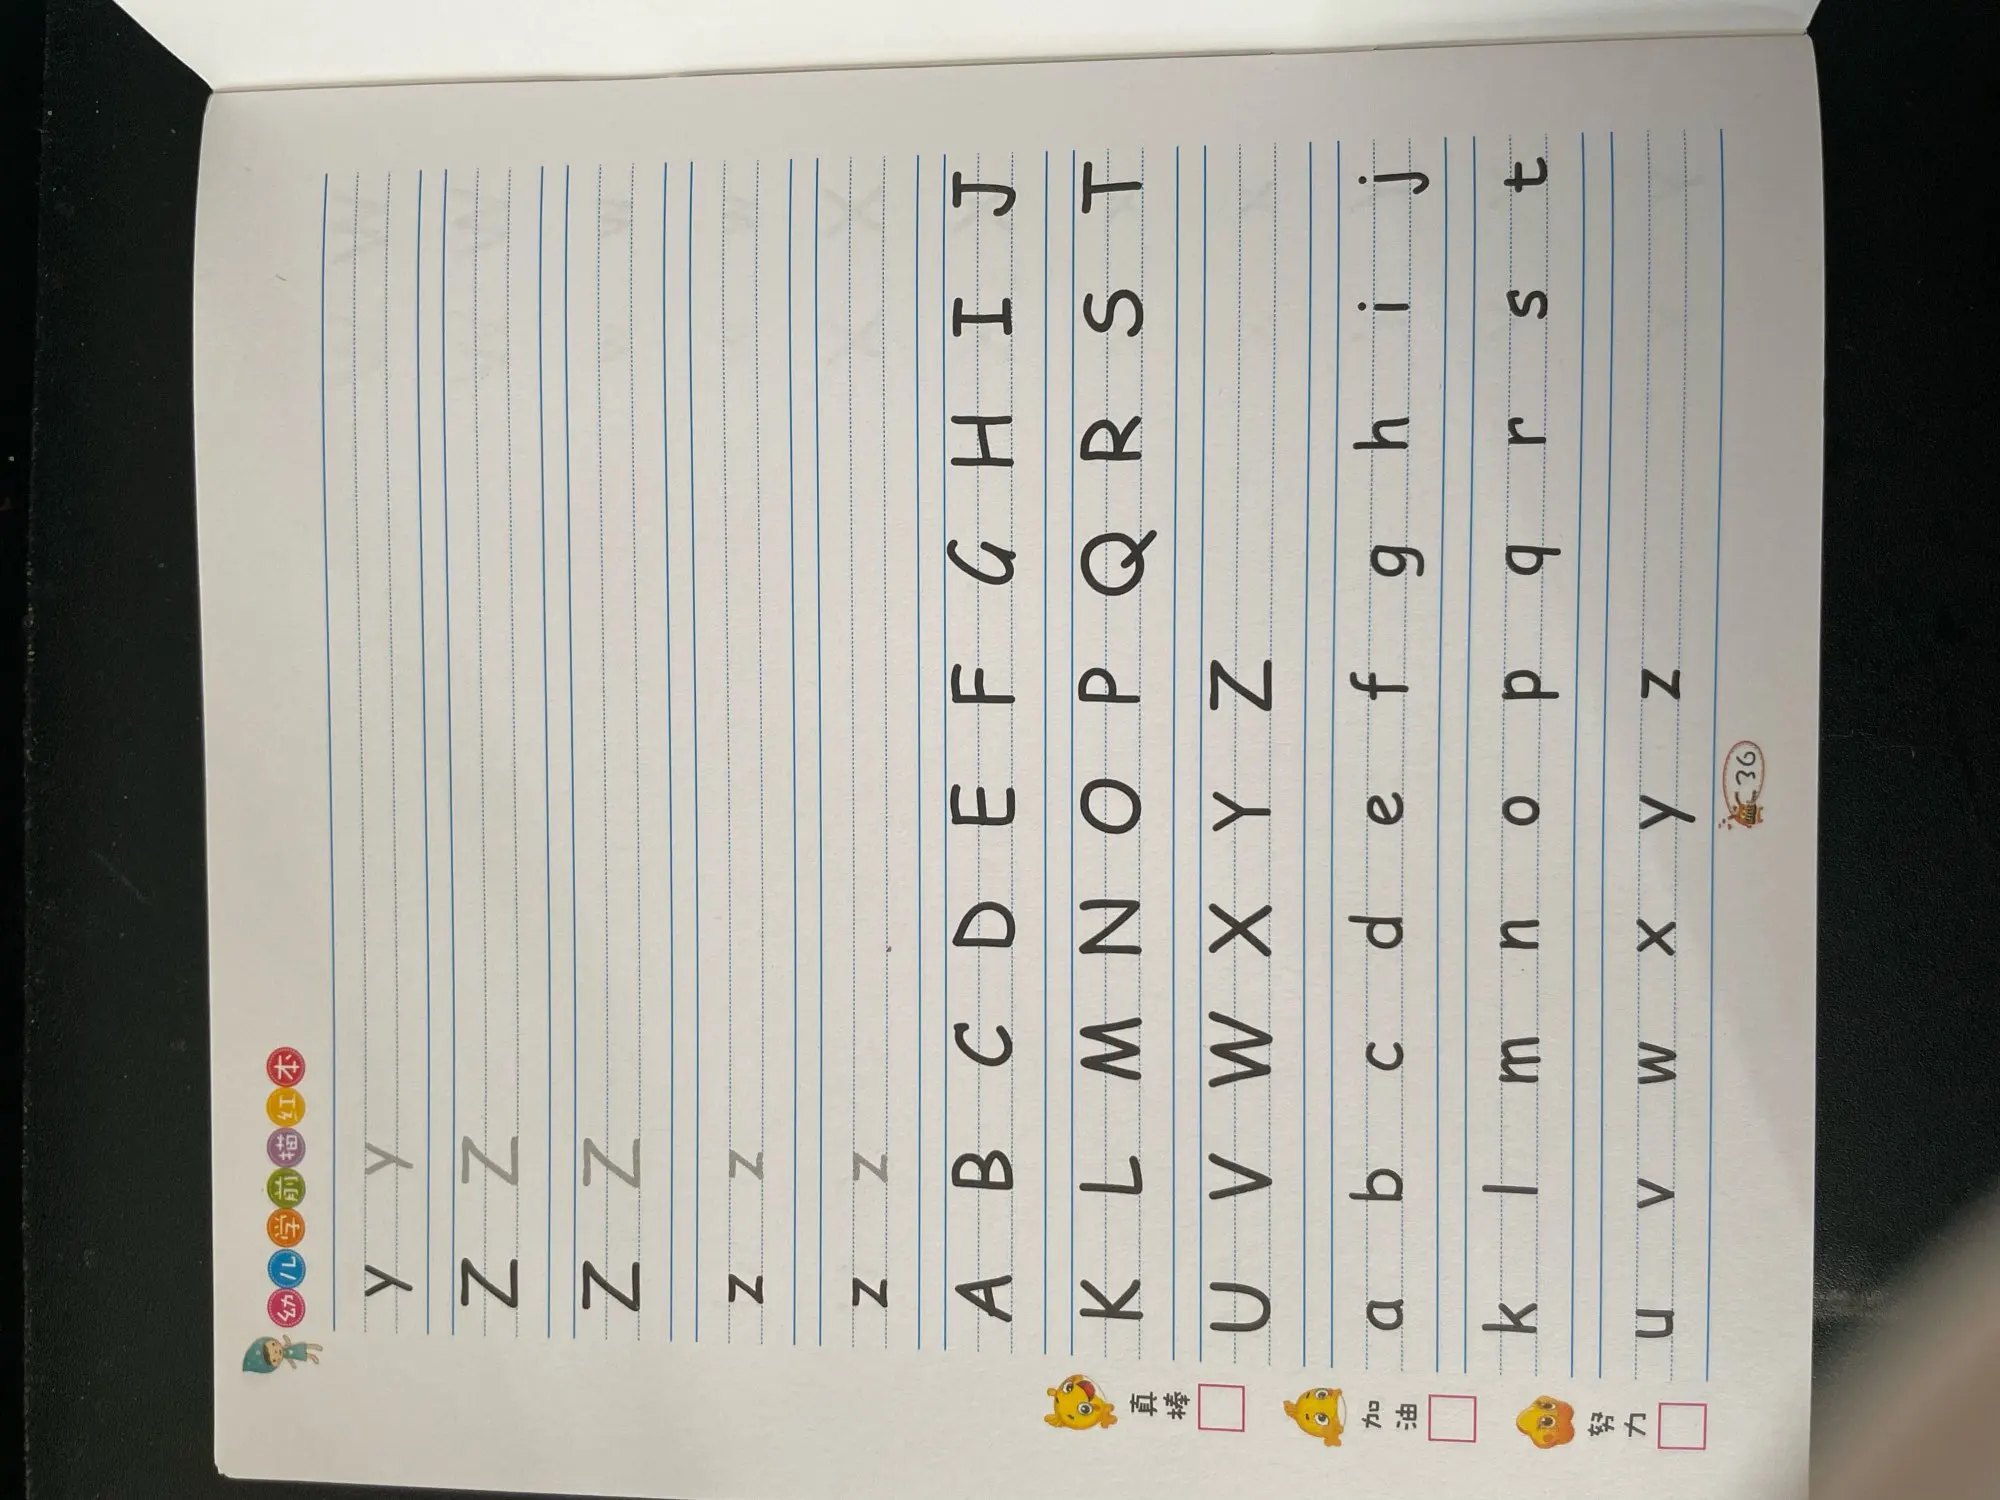 幼儿学前描红本
y y
Z Z
Z Z
z z
z z
A B C D E F G H I J
K L M N O P Q R S T
U V W X Y Z
a b c d e f g h i j
k l m n o p q r s t
u v w x y z
真棒
加油
努力
36